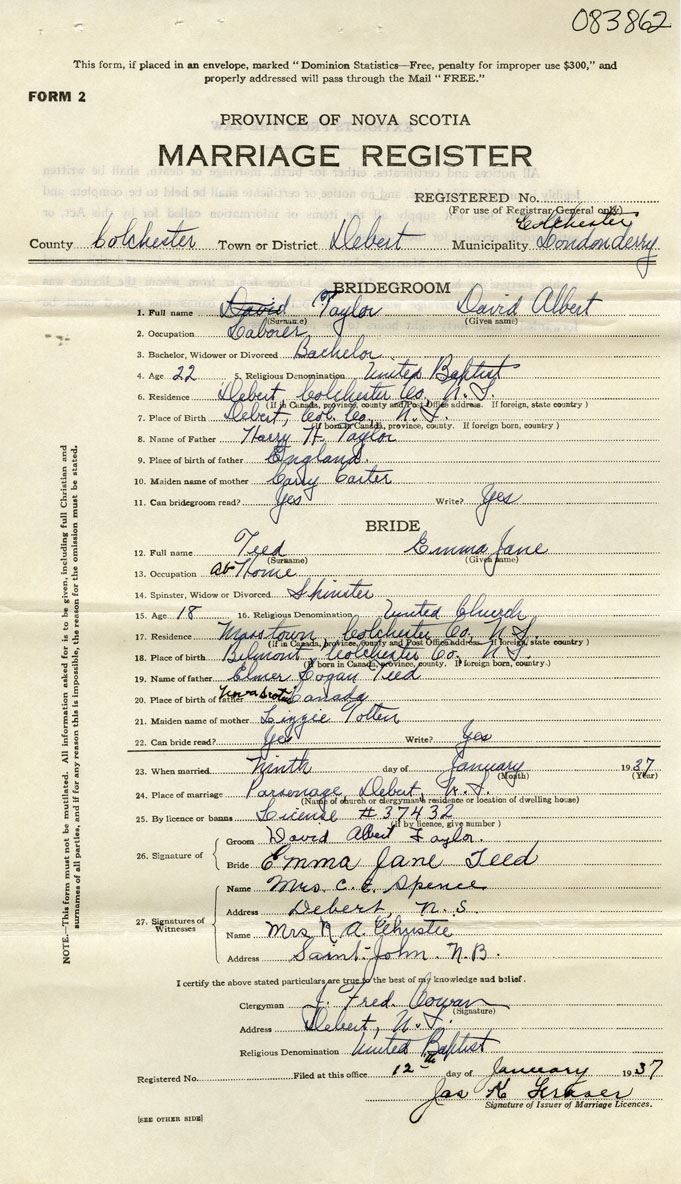 083862
This form, if placed in an envelope, marked "Dominion Statistics—Free, penalty for improper use $300," and
properly addressed will pass through the Mail "FREE."
FORM 2
PROVINCE OF NOVA SCOTIA
MARRIAGE REGISTER
REGISTERED No.
(For use of Registrar General only)
Colchester
County Colchester Town or District Debert Municipality Londonderry
BRIDEGROOM
1. Full name David Taylor David Albert
(Surname) (Given name)
2. Occupation Laborer
3. Bachelor, Widower or Divorced Bachelor
4. Age 22 5. Religious Denomination United Baptist
6. Residence Debert Colchester Co. N.S.
(If in Canada, province, county and Post Office address. If foreign, state country)
7. Place of Birth Debert, Col. Co. N.S.
(If born in Canada, province, county. If foreign born, country)
8. Name of Father Harry H. Taylor
9. Place of birth of father England.
10. Maiden name of mother Carry Carter
11. Can bridegroom read? Yes Write? Yes
BRIDE
12. Full name Teed Emma Jane
(Surname) (Given name)
13. Occupation at Home
14. Spinster, Widow or Divorced Spinster
15. Age 18 16. Religious Denomination United Church
17. Residence Masstown, Colchester Co. N.S.
(If in Canada, province, county and Post Office address. If foreign, state country)
18. Place of birth Belmont, Colchester Co. N.S.
(If born in Canada, province, county. If foreign born, country.)
19. Name of father Elmer Logan Teed
20. Place of birth of father Nova Scotia Canada
21. Maiden name of mother Lizzie Totten
22. Can bride read? Yes Write? Yes
23. When married Ninth day of January 1937
(Month) (Year)
24. Place of marriage Parsonage Debert, N.S.
(Name of church or clergyman's residence or location of dwelling house)
25. By licence or banns License # 37432
(If by licence, give number)
26. Signature of
Groom David Albert Taylor.
Bride Emma Jane Teed
27. Signatures of Witnesses
Name Mrs. C. E. Spence
Address Debert, N.S.
Name Mrs N A Christie
Address Saint-John. N.B.
I certify the above stated particulars are true to the best of my knowledge and belief.
Clergyman J. Fred. Cowan
(Signature)
Address Debert, N.S.
Religious Denomination United Baptist
Registered No. Filed at this office 12th day of January 1937
Jas K Fraser
Signature of Issuer of Marriage Licences.
[SEE OTHER SIDE]
NOTE.—This form must not be mutilated. All information asked for is to be given, including full Christian and
surnames of all parties, and if for any reason this is impossible, the reason for the omission must be stated.